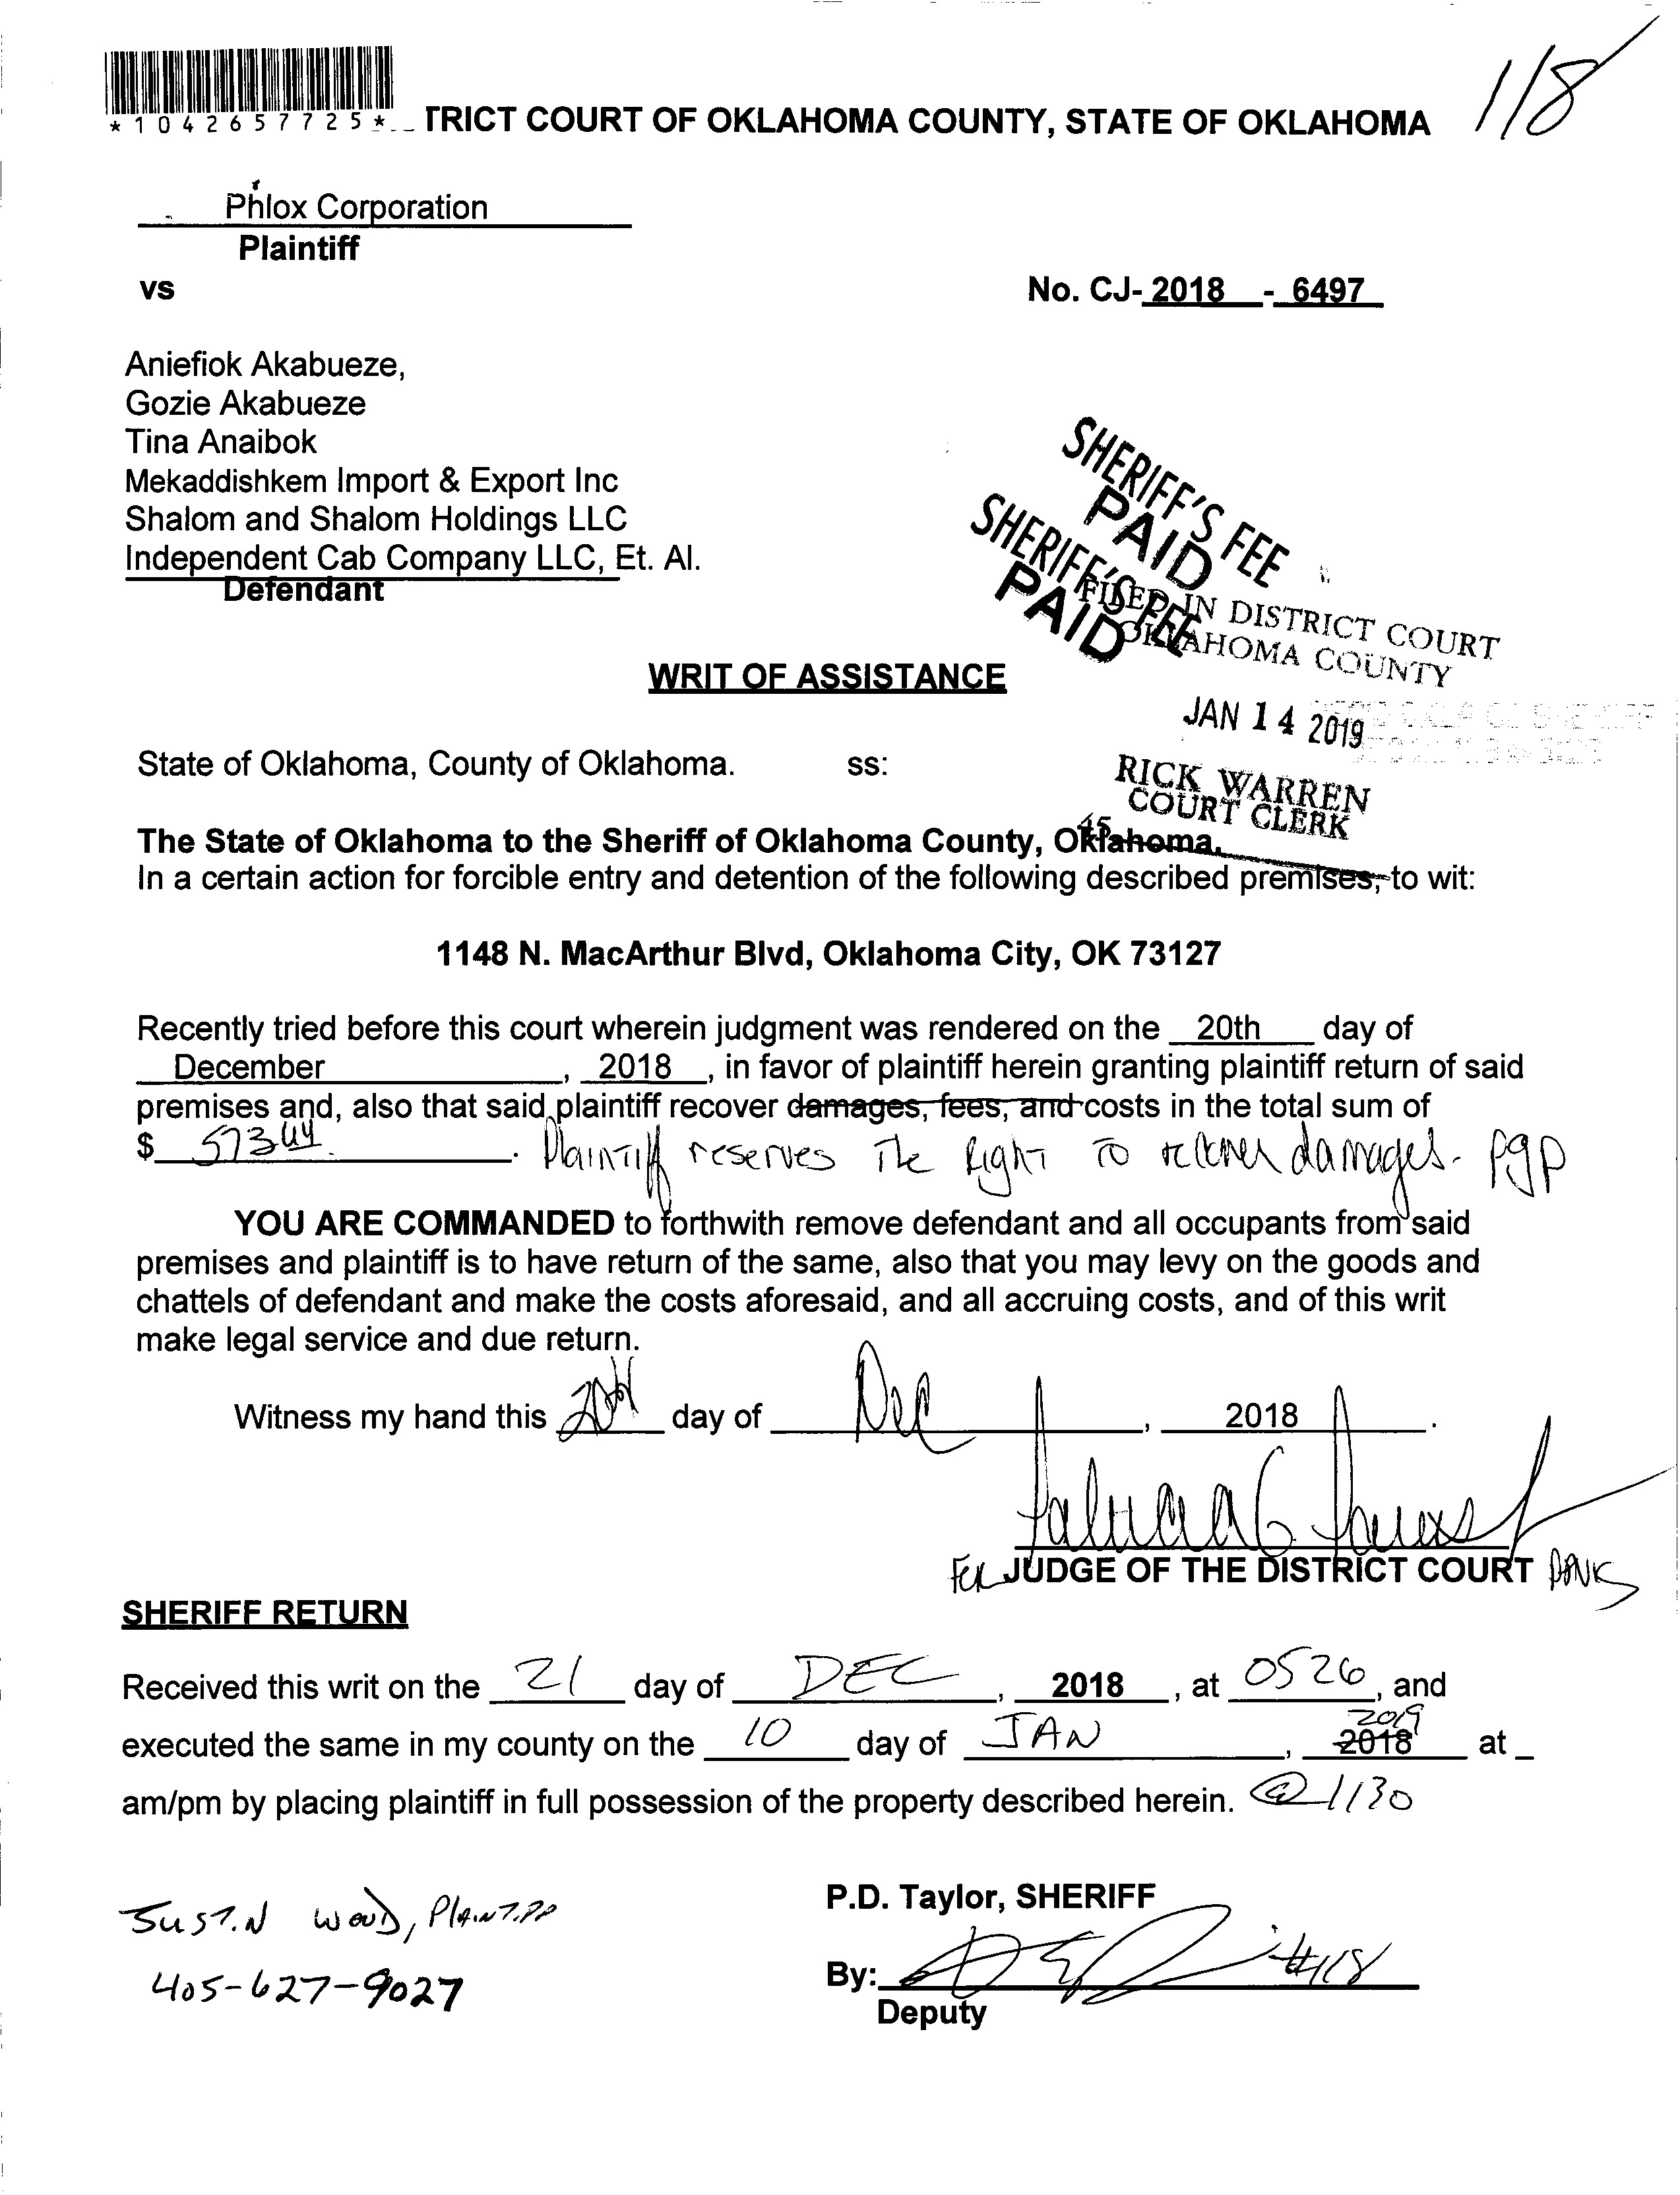 118
*1042657725*
TRICT COURT OF OKLAHOMA COUNTY, STATE OF OKLAHOMA
Phlox Corporation
Plaintiff
vs
No. CJ- 2018 - 6497
Aniefiok Akabueze,
Gozie Akabueze
Tina Anaibok
Mekaddishkem Import & Export Inc
Shalom and Shalom Holdings LLC
Independent Cab Company LLC, Et. Al.
Defendant
SHERIFF'S FEE
PAID
SHERIFF'S FEE
PAID
FILED IN DISTRICT COURT
OKLAHOMA COUNTY
WRIT OF ASSISTANCE
JAN 14 2019
State of Oklahoma, County of Oklahoma. ss:
RICK WARREN
COURT CLERK
45
The State of Oklahoma to the Sheriff of Oklahoma County, Oklahoma.
In a certain action for forcible entry and detention of the following described premises, to wit:
1148 N. MacArthur Blvd, Oklahoma City, OK 73127
Recently tried before this court wherein judgment was rendered on the 20th day of
December , 2018 , in favor of plaintiff herein granting plaintiff return of said
premises and, also that said plaintiff recover damages, fees, and costs in the total sum of
$ 573 44 . Plaintiff reserves the Right to recover damages. pgp
YOU ARE COMMANDED to forthwith remove defendant and all occupants from said
premises and plaintiff is to have return of the same, also that you may levy on the goods and
chattels of defendant and make the costs aforesaid, and all accruing costs, and of this writ
make legal service and due return.
Witness my hand this 20th day of Dec , 2018 .
For JUDGE OF THE DISTRICT COURT
SHERIFF RETURN
Received this writ on the 21 day of DEC , 2018 , at 0526 , and
executed the same in my county on the 10 day of JAN , 2018 2019 at _
am/pm by placing plaintiff in full possession of the property described herein. @ 1130
P.D. Taylor, SHERIFF
JUSTIN WOOD, PLAINTIFF
405-627-9027
By: #118
Deputy